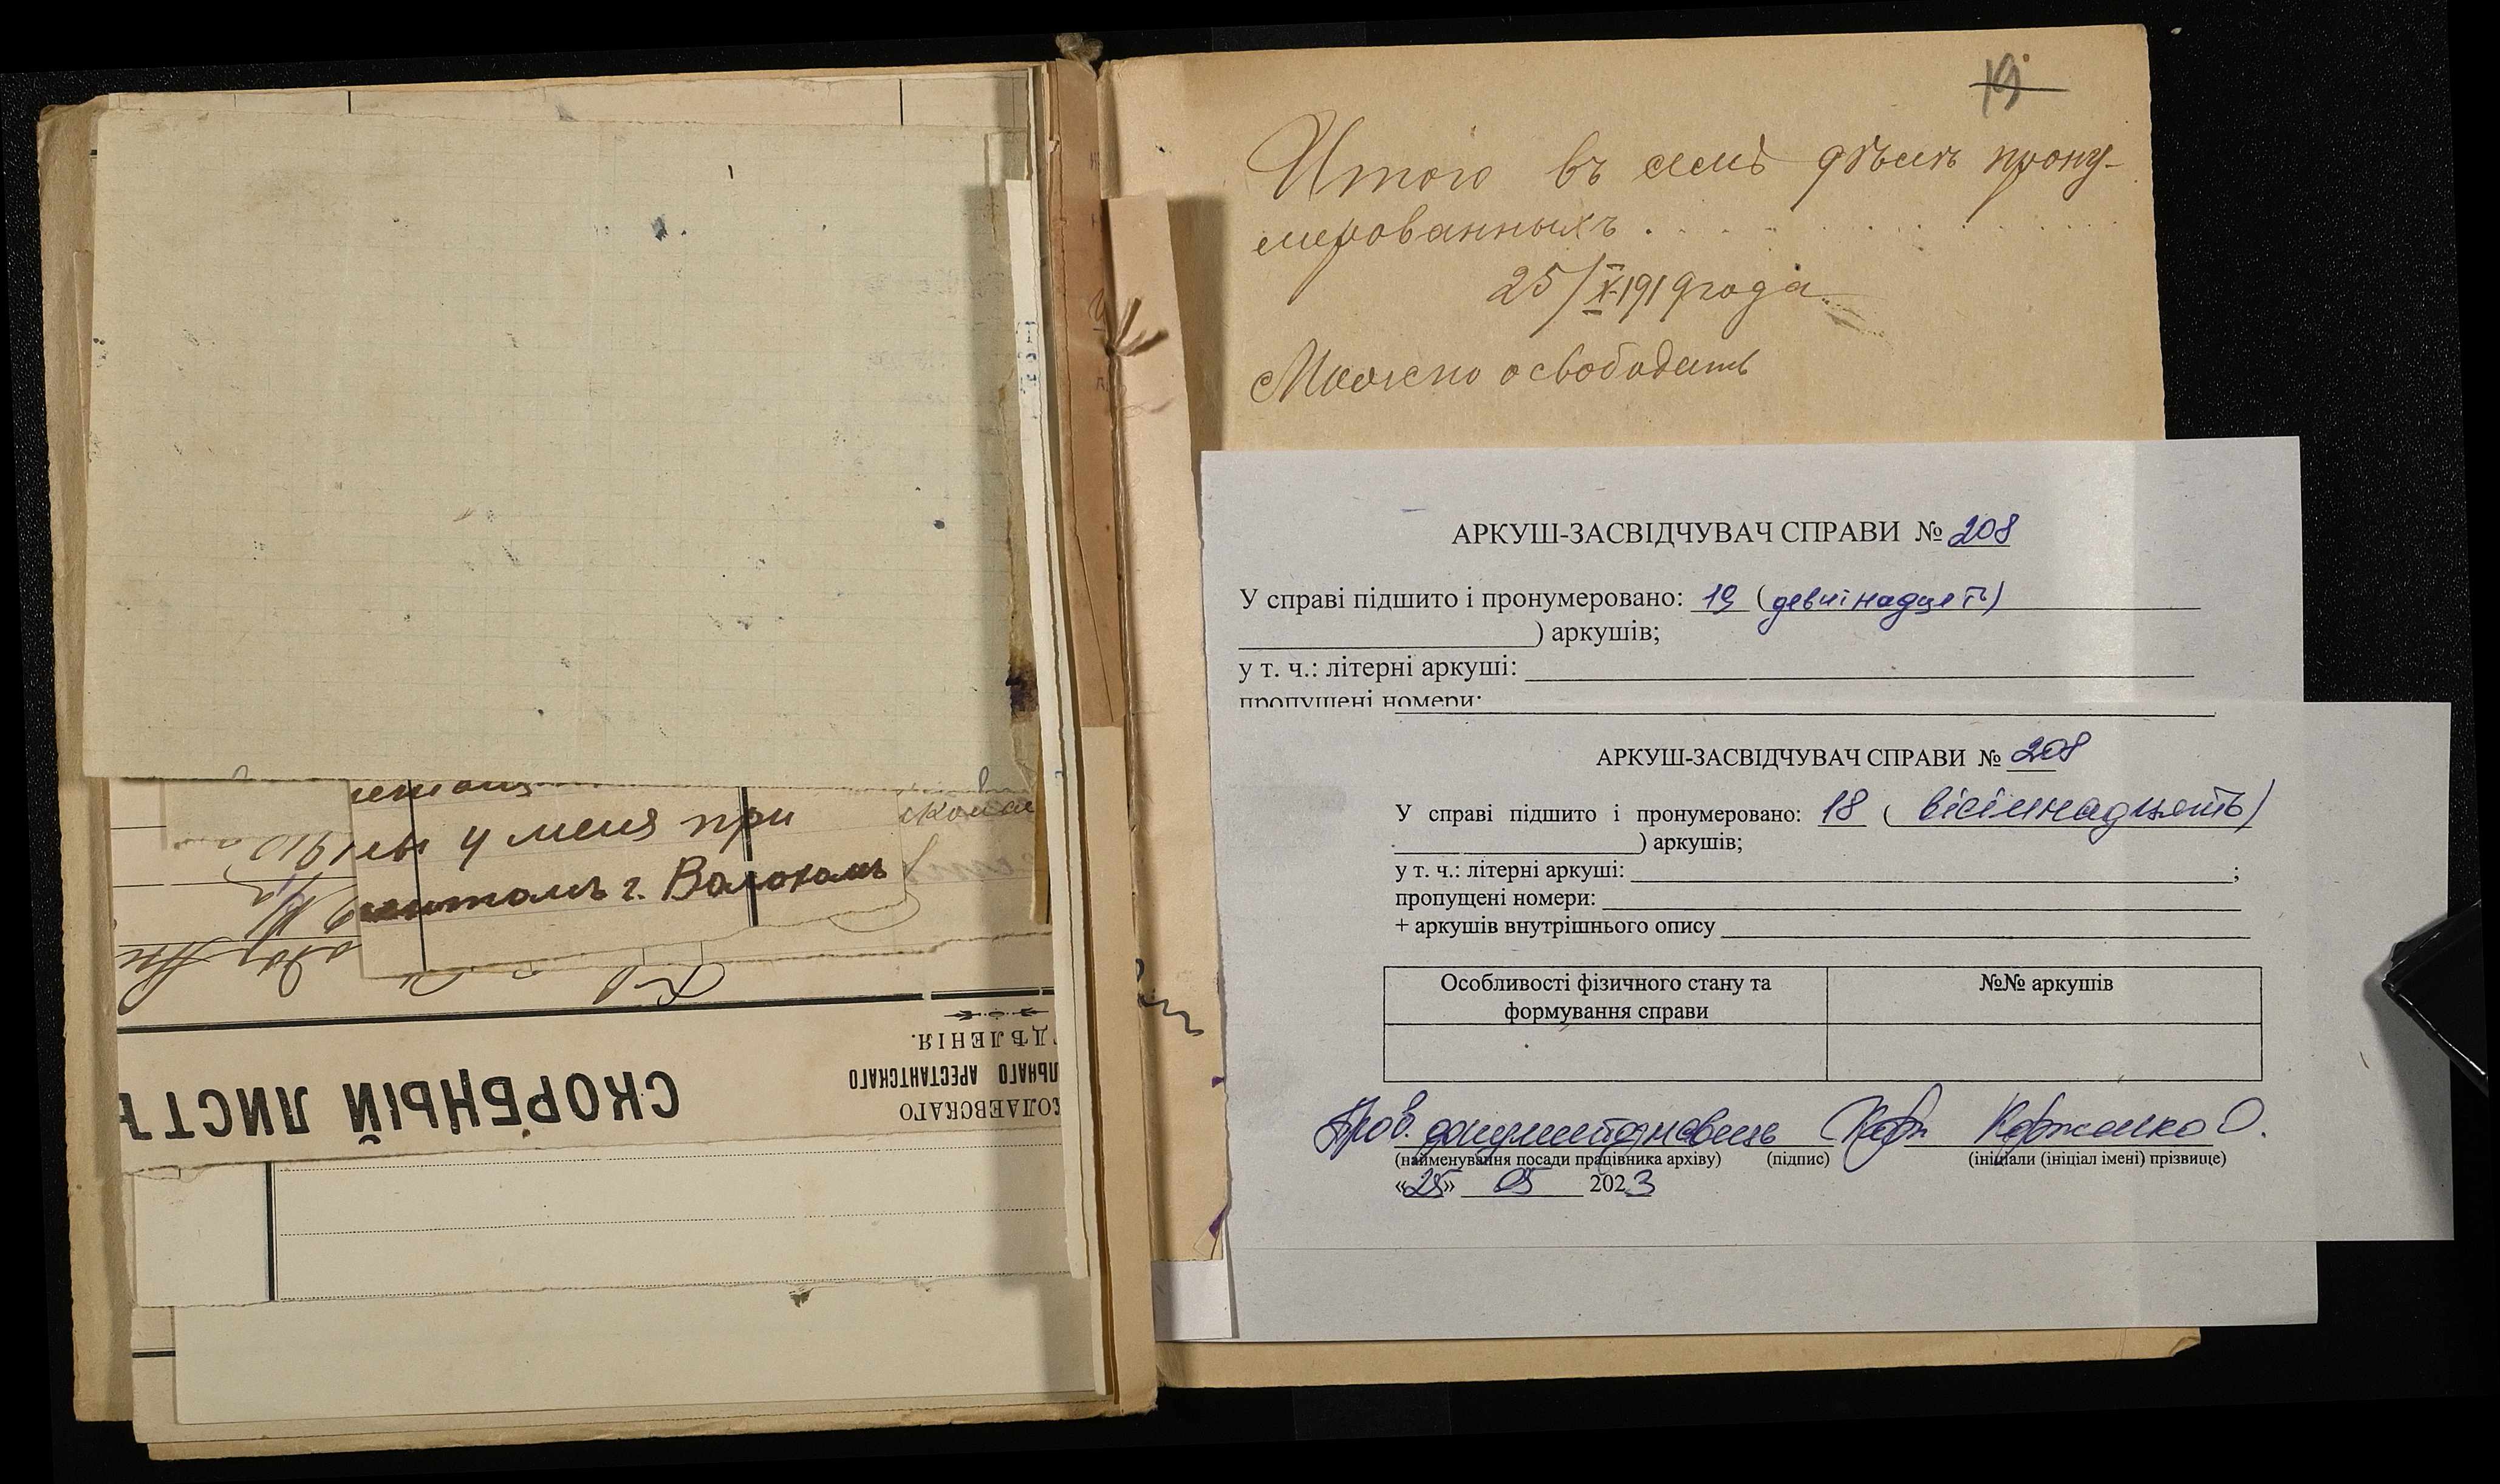 у меня при
г. Волокомъ
1910
СКОРБНЫЙ ЛИСТЪ
ОЛАЕВСКАГО
ЛЬНАГО АРЕСТАНТСКАГО
ДѢЛЕНІЯ.
19
Итого въ семъ дѣлѣ прону-
мерованныхъ . . . . . . . . .
25/X 1919 года
Можно освободить
АРКУШ-ЗАСВІДЧУВАЧ СПРАВИ № 208
У справі підшито і пронумеровано: 19 (девятнадцять)
) аркушів;
у т. ч.: літерні аркуші:
пропущені номери:
АРКУШ-ЗАСВІДЧУВАЧ СПРАВИ № 208
У справі підшито і пронумеровано: 18 ( вісімнадцять)
) аркушів;
у т. ч.: літерні аркуші: ;
пропущені номери:
+ аркушів внутрішнього опису
Особливості фізичного стану та
формування справи
№№ аркушів
Пров. документознавець Корженко О.
(найменування посади працівника архіву) (підпис) (ініціали (ініціал імені) прізвище)
«25» 05 2023